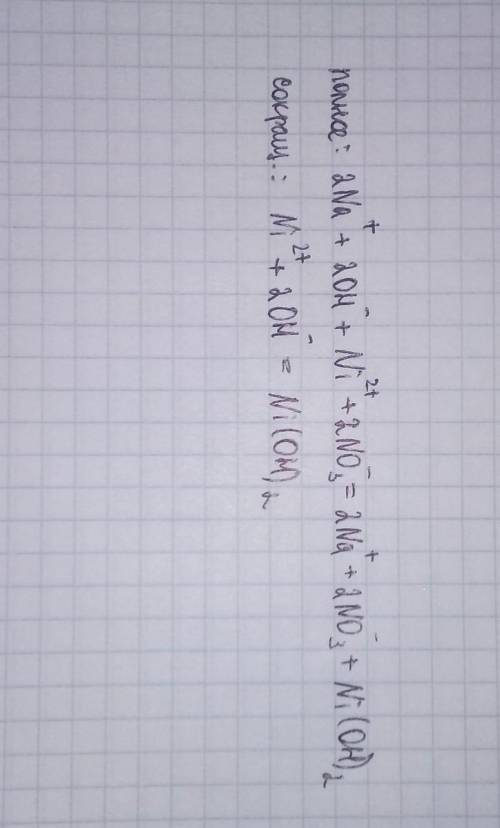 полное: 2Na⁺ + 2OH⁻ + Ni²⁺ + 2NO₃⁻ = 2Na⁺ + 2NO₃⁻ + Ni(OH)₂
сокращ.: Ni²⁺ + 2OH⁻ = Ni(OH)₂